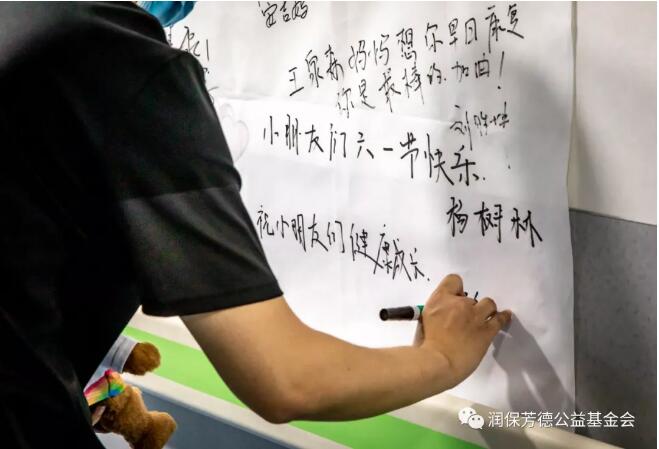 安吉妈
王泉森妈妈想你早日康复
你是最棒的，加油！
小朋友们六一节快乐！
杨树林
祝小朋友们健康成长.
润保芳德公益基金会